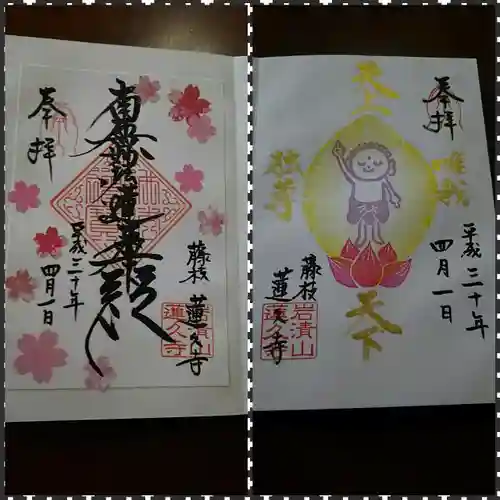 奉拝
南無妙法蓮華経
平成三十年
四月一日
藤枝
蓮久寺
岩清山
蓮久寺
奉拝
天上
唯我
独尊
天下
平成三十年
四月一日
藤枝
蓮久寺
岩清山
蓮久寺